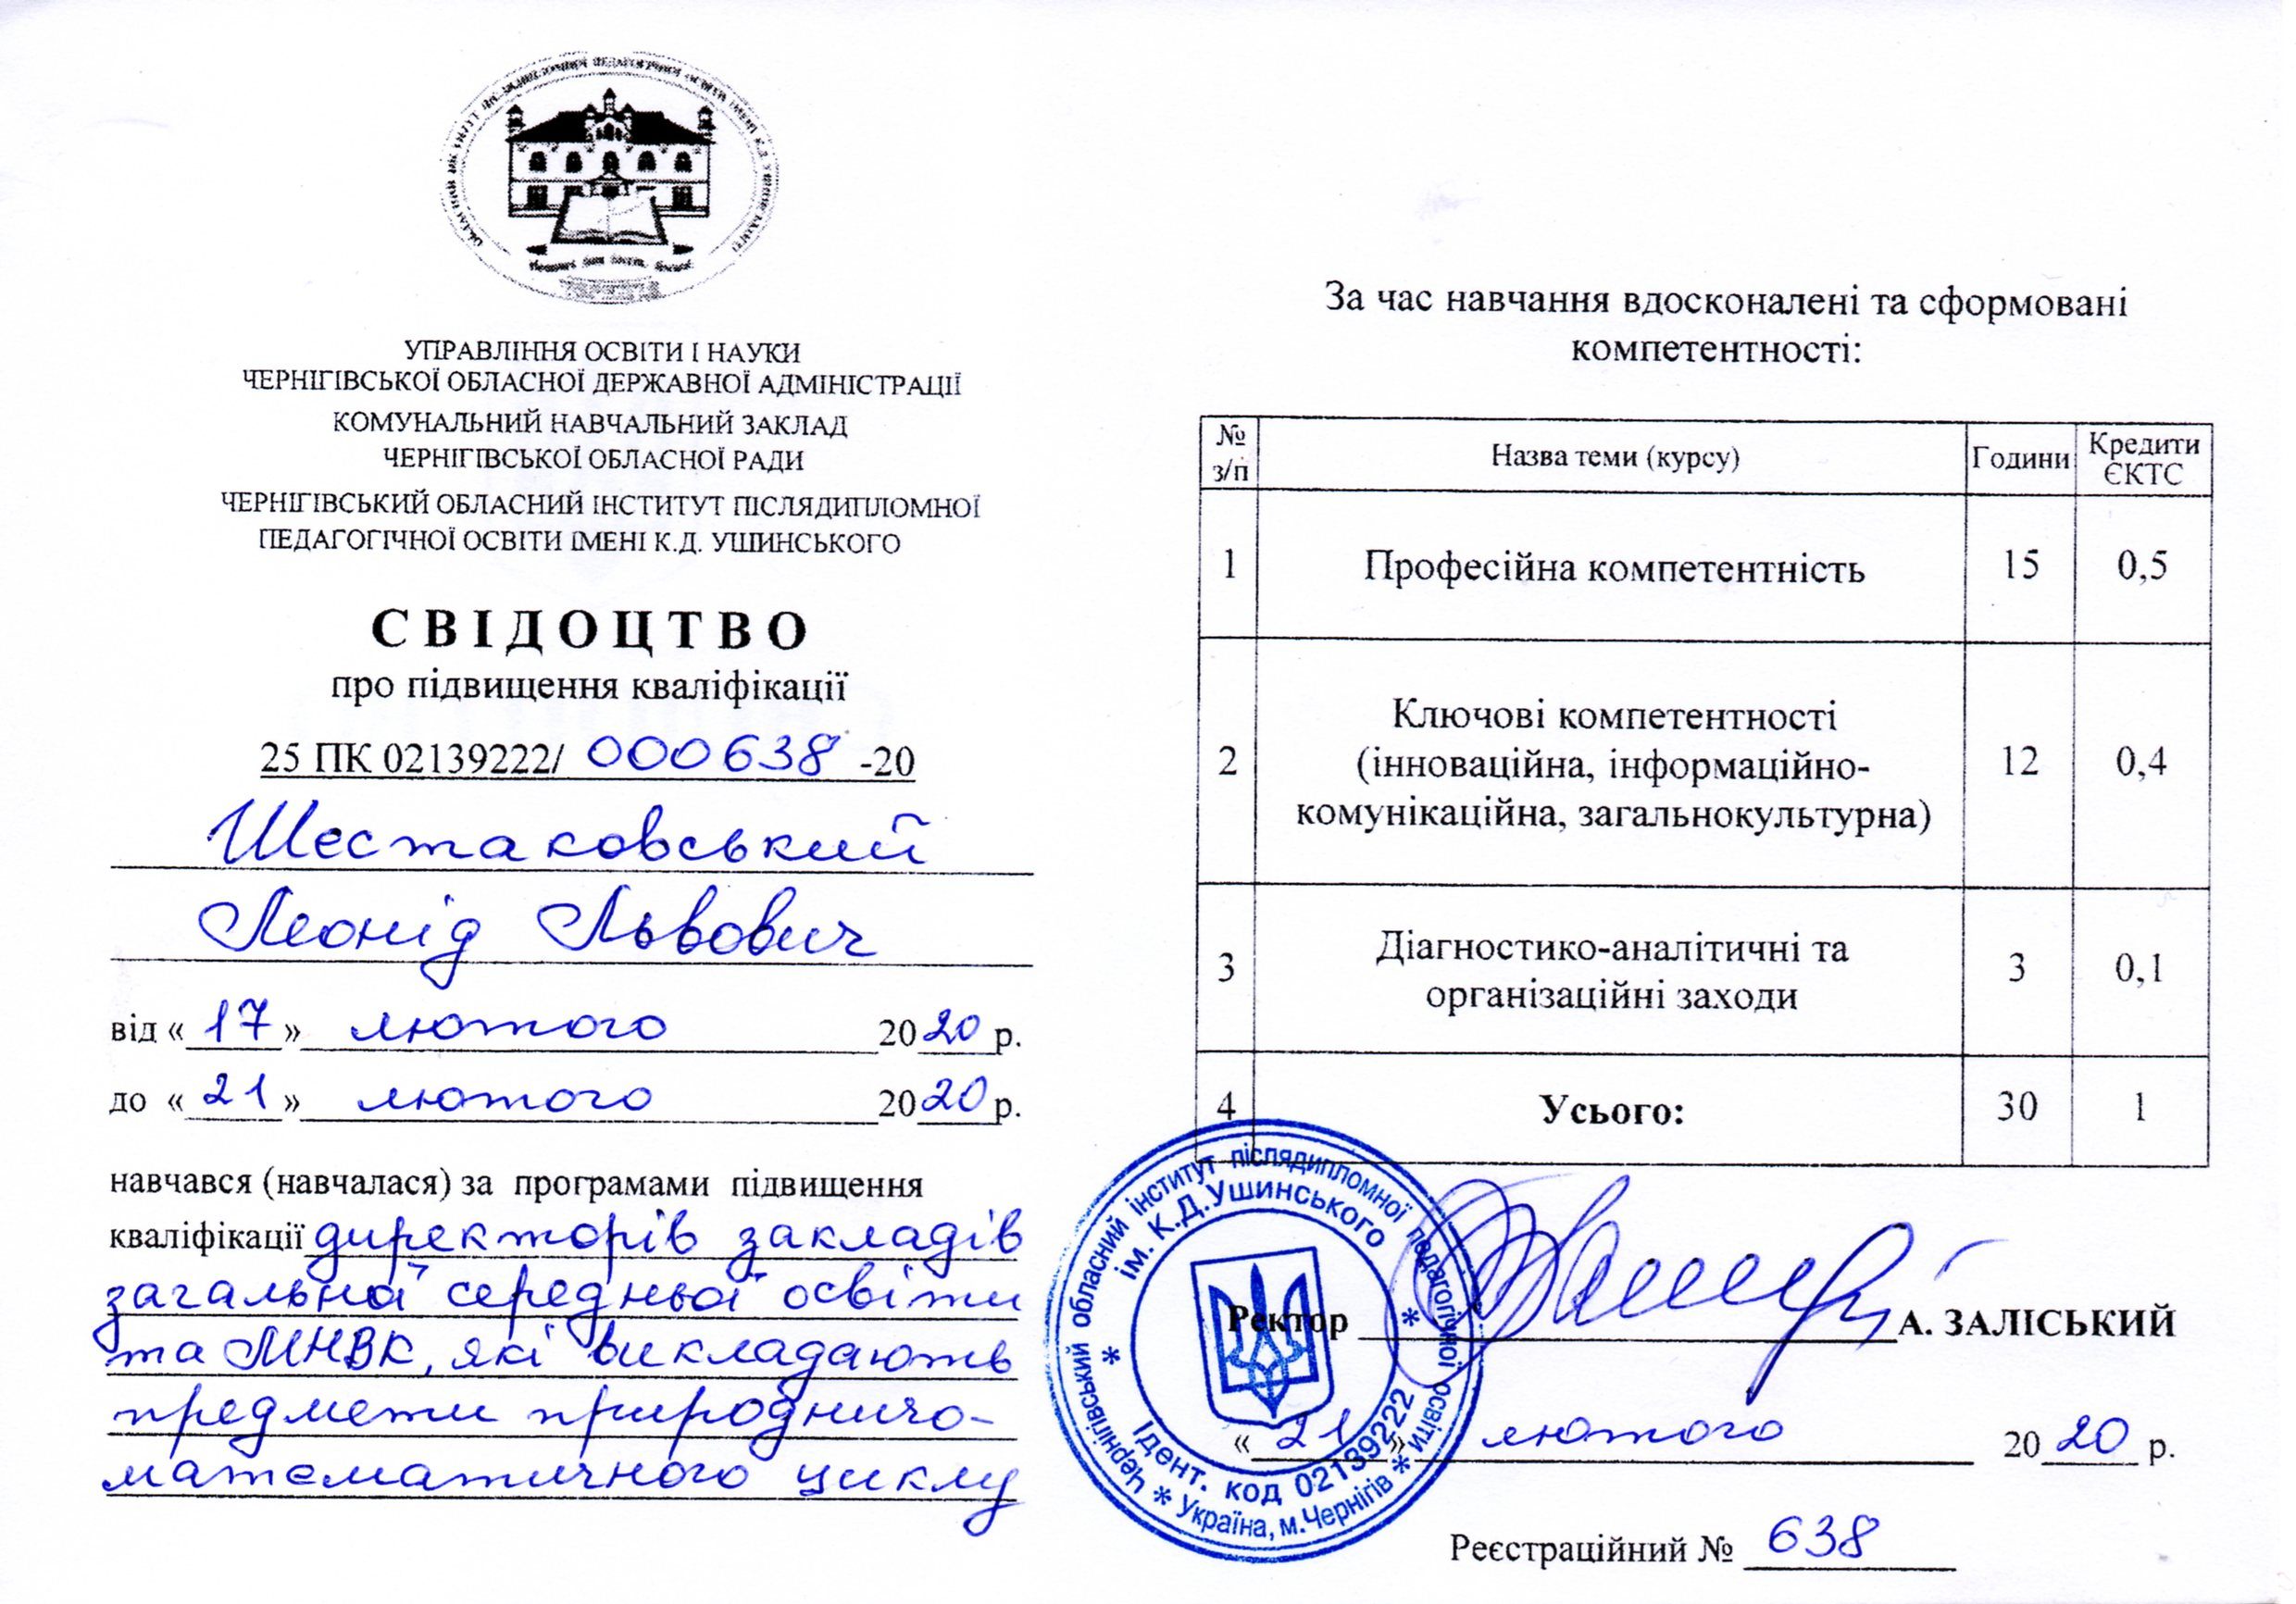 УПРАВЛІННЯ ОСВІТИ І НАУКИ
ЧЕРНІГІВСЬКОЇ ОБЛАСНОЇ ДЕРЖАВНОЇ АДМІНІСТРАЦІЇ
КОМУНАЛЬНИЙ НАВЧАЛЬНИЙ ЗАКЛАД
ЧЕРНІГІВСЬКОЇ ОБЛАСНОЇ РАДИ
ЧЕРНІГІВСЬКИЙ ОБЛАСНИЙ ІНСТИТУТ ПІСЛЯДИПЛОМНОЇ
ПЕДАГОГІЧНОЇ ОСВІТИ ІМЕНІ К.Д. УШИНСЬКОГО
СВІДОЦТВО
про підвищення кваліфікації
25 ПК 02139222/ 000638 -20
Шестаковський
Леонід Львович
від « 17 » лютого 2020 р.
до « 21 » лютого 2020 р.
навчався (навчалася) за програмами підвищення
кваліфікації директорів закладів
загальної середньої освіти
та МНВК, які викладають
предмети природничо-
математичного циклу
За час навчання вдосконалені та сформовані
компетентності:
№ з/п Назва теми (курсу) Години Кредити ЄКТС
1 Професійна компетентність 15 0,5
2 Ключові компетентності (інноваційна, інформаційно-комунікаційна, загальнокультурна) 12 0,4
3 Діагностико-аналітичні та організаційні заходи 3 0,1
4 Усього: 30 1
Ректор А. ЗАЛІСЬКИЙ
« 21 » лютого 2020 р.
Реєстраційний № 638
Чернігівський обласний інститут післядипломної педагогічної освіти
ім. К.Д.Ушинського
Ідент. код 02139222
* Україна, м.Чернігів *